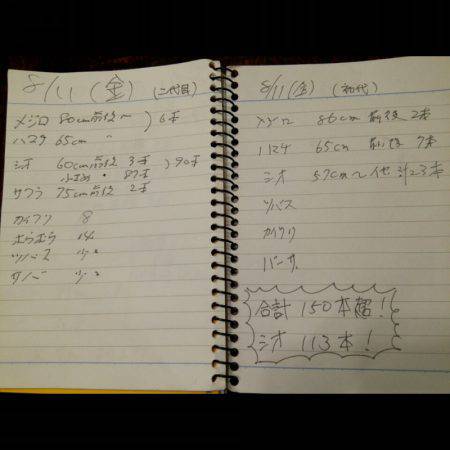 8/11 (金) (二代目)
メジロ 80cm前後 〜 ) 6本
ハマチ 65cm 〃
シオ 60cm前後 3本 ) 90本
小さめ 〃 87本
サワラ 75cm前後 2本
カイワリ 8
ツバス 少々
サバ 少々
8/11 (金) (初代)
メジロ 86cm 前後 2本
ハマチ 65cm 前後 7本
シオ 57cm〜 他 計23本
ツバス
カイワリ
合計 150本超!
シオ 113本!